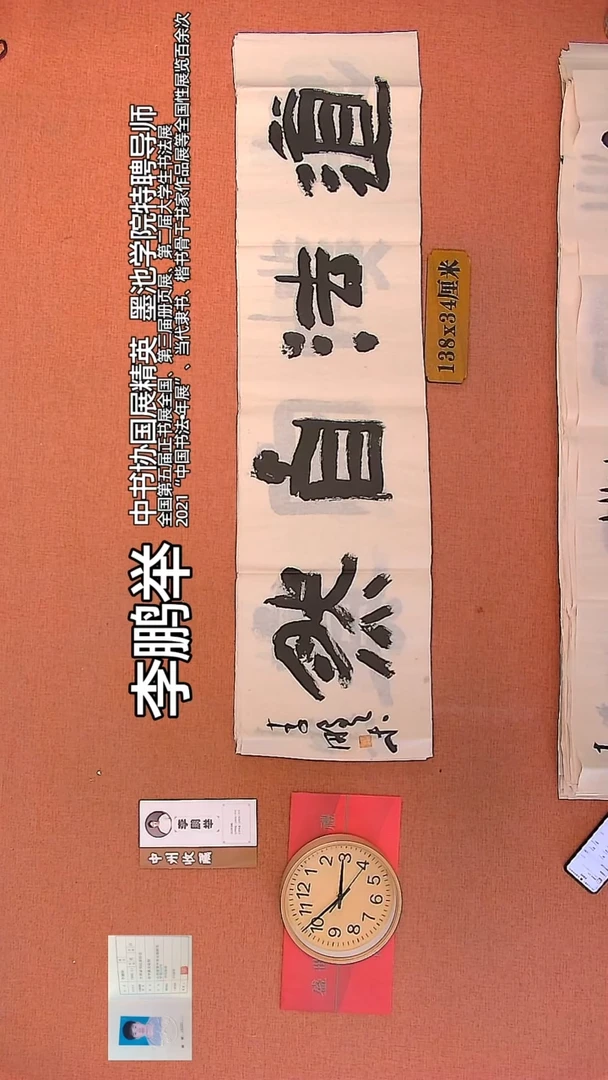 李鹏举
中书协国展精英 墨池学院特聘导师
全国第五届正书展全国、第三届册页展、第二届大学生书法展
2021“中国书法·年展”、当代隶书、楷书骨干书家作品展等全国性展览百余次
道法自然
138x34厘米
李鹏举
中州收藏
12 1 2 3 4 5 6 7 8 9 10 11